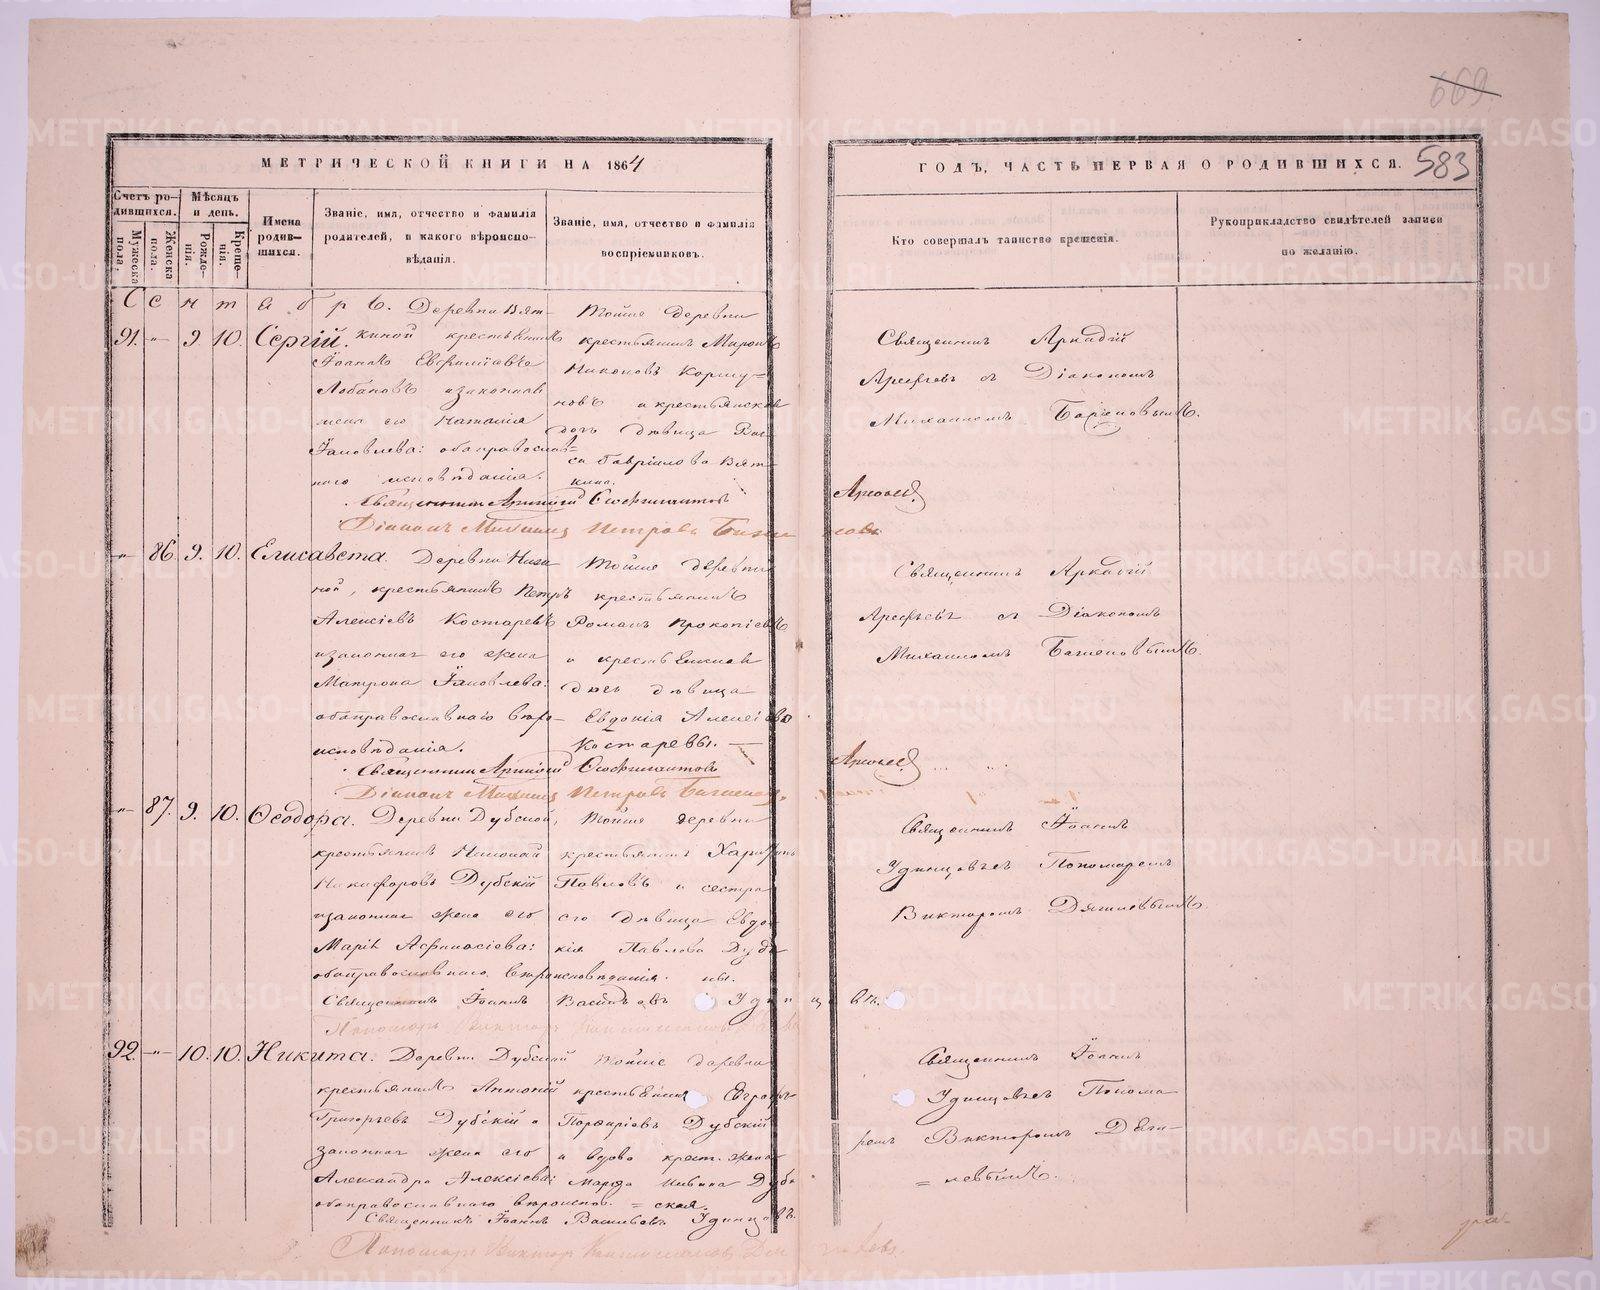 669.
МЕТРИЧЕСКОЙ КНИГИ НА 1864
ГОДЪ, ЧАСТЬ ПЕРВАЯ О РОДИВШИХСЯ.
583
Счетъ ро-
дившихся.
Мужеска
пола.
Женска
пола.
Мѣсяцъ
и день.
Рожде-
нія.
Креще-
нія.
Имена
родив-
шихся.
Званіе, имя, отчество и фамилія
родителей, и какого вѣроиспо-
вѣданія.
Званіе, имя, отчество и фамилія
воспріемниковъ.
Кто совершалъ таинство крещенія.
Рукоприкладство свидѣтелей записи
по желанію.
Сентябрь.
91. -„- 9. 10. Сергій.
Деревни Вят-
киной крестьянинъ
Іоаннъ Евфиміевъ
Лобановъ и законная
жена его Наталія
Іаковлева: оба православ-
наго исповѣданія.
Тойже деревни
крестьянинъ Миронъ
Никоновъ Коршу-
новъ и крестьянская
дочь дѣвица
Гавріилова Вят-
кина.
Священникъ Аркадій
Арефьевъ съ Діакономъ
Михаиломъ Баженовымъ.
Священникъ Аркадій
Діаконъ Михаилъ Петровъ Баженовъ
-„- 86. 9. 10. Елисавета.
Деревни
ной, крестьянинъ Петръ
Алексіевъ Костаревъ
и законная его жена
Матрона Іаковлева:
оба православнаго вѣро-
исповѣданія.
Тойже деревни
крестьянинъ
Романъ Прокопіевъ
и крестьянская
дочь дѣвица
Евдокія Алексіева
Костаревы.
Священникъ Аркадій
Арефьевъ съ Діакономъ
Михаиломъ Баженовымъ.
Священникъ Аркадій
Діаконъ Михаилъ Петровъ Баженовъ
-„- 87. 9. 10. Ѳеодора.
Деревни Дубской,
крестьянинъ Николай
Никифоровъ Дубскій
и законная жена его
Марія Афанасіева:
оба православнаго вѣроисповѣданія.
Тойже деревни
крестьянинъ Харитонъ
Павловъ и сестра
его дѣвица Евдо-
кія Павлова Дубс-
кы.
Священникъ Іоаннъ
Удинцовъ съ Пономаремъ
Викторомъ
Священникъ Іоаннъ Васильевъ Удинцовъ.
Пономарь Викторъ
92. -„- 10. 10. Никита.
Деревни Дубской
крестьянинъ Антоній
Григорьевъ Дубскій и
законная жена его
Александра Алексіева:
оба православнаго вѣроиспов.
Тойже деревни
крестьянинъ Евграфъ
Порфиріевъ Дубскій
и вдова крест. жена
Марфа Дуб-
= ская.
Священникъ Іоаннъ
Удинцовъ съ Понома
ремъ Викторомъ
Священникъ Іоаннъ Васильевъ Удинцовъ.
Пономарь Викторъ
METRIKI.GASO-URAL.RU